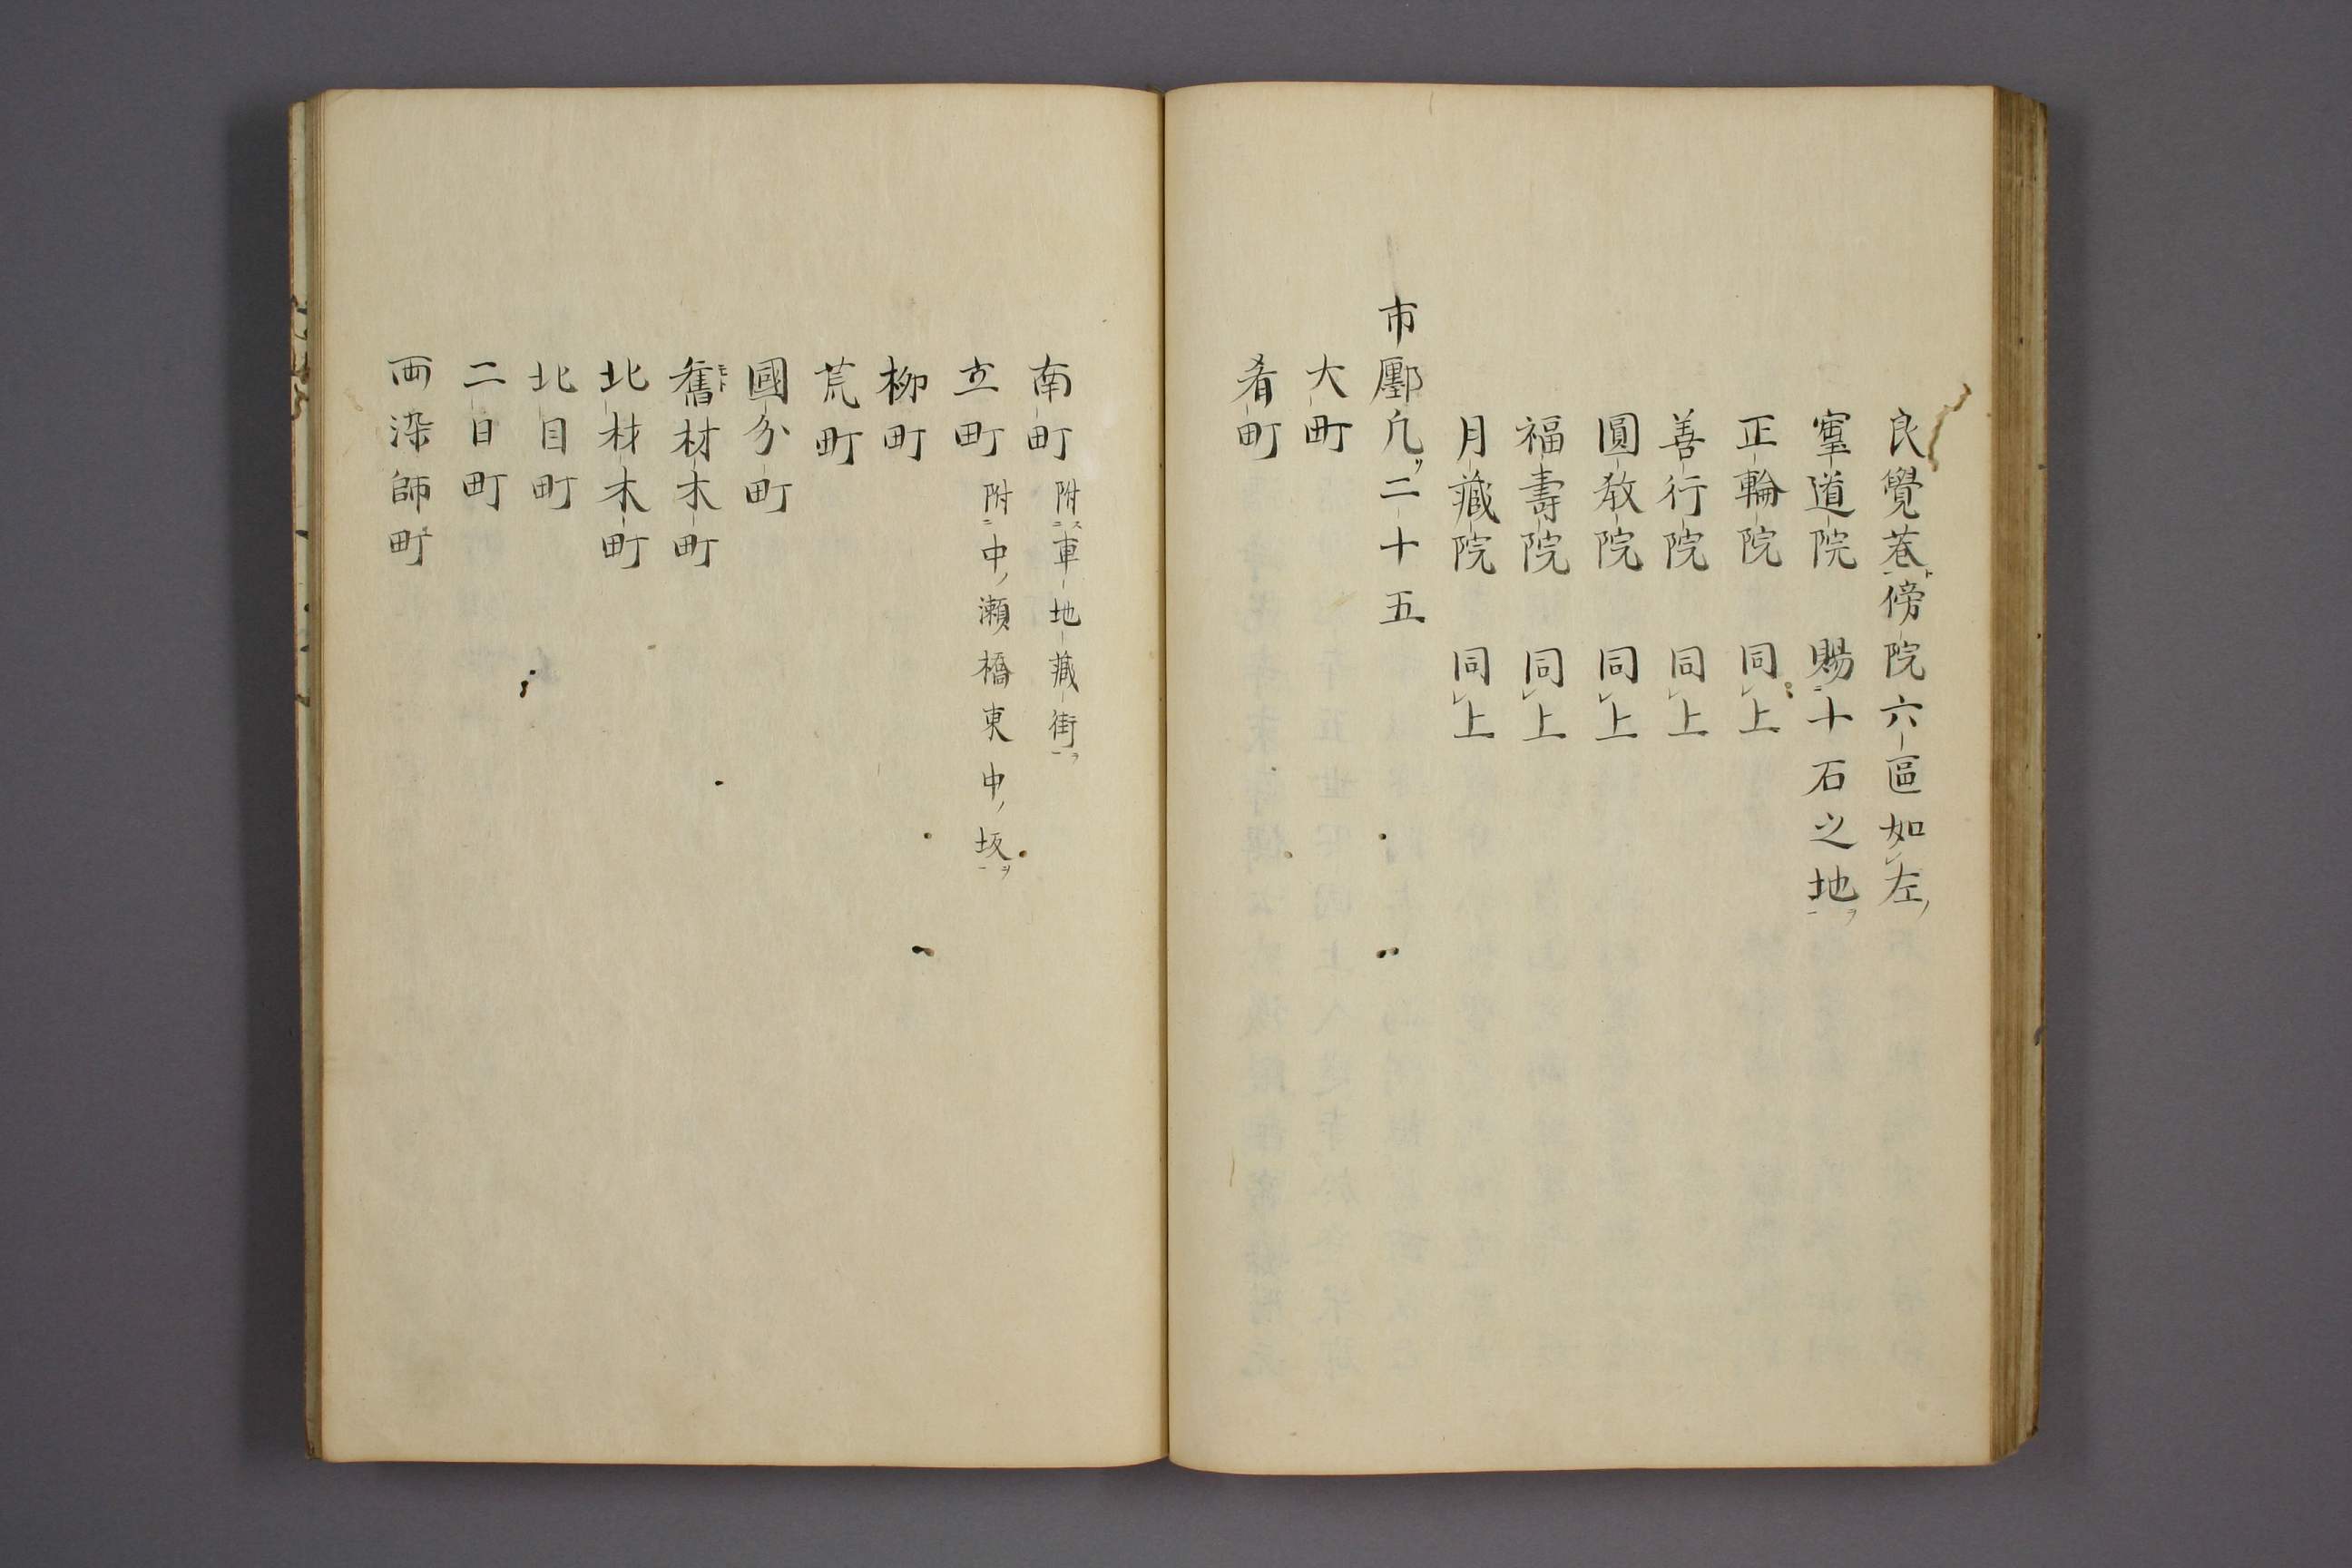 良覺巷傍院六區如左
道院　賜十石之地
正輪院　同上
善行院　同上
圓教院　同上
福壽院　同上
月藏院　同上
市鄽凢二十五
大町
肴町
南町附車地藏街
立町附中瀬橋東中坂
柳町
荒町
國分町
舊材木町
北材木町
北目町
二日町
西染師町